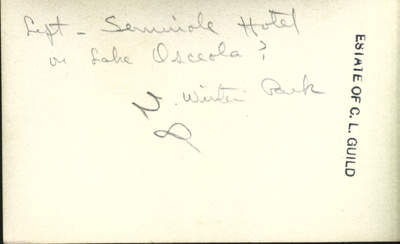 Left - Seminole Hotel
on Lake Osceola?
Winter Park
ESTATE OF C. L. GUILD